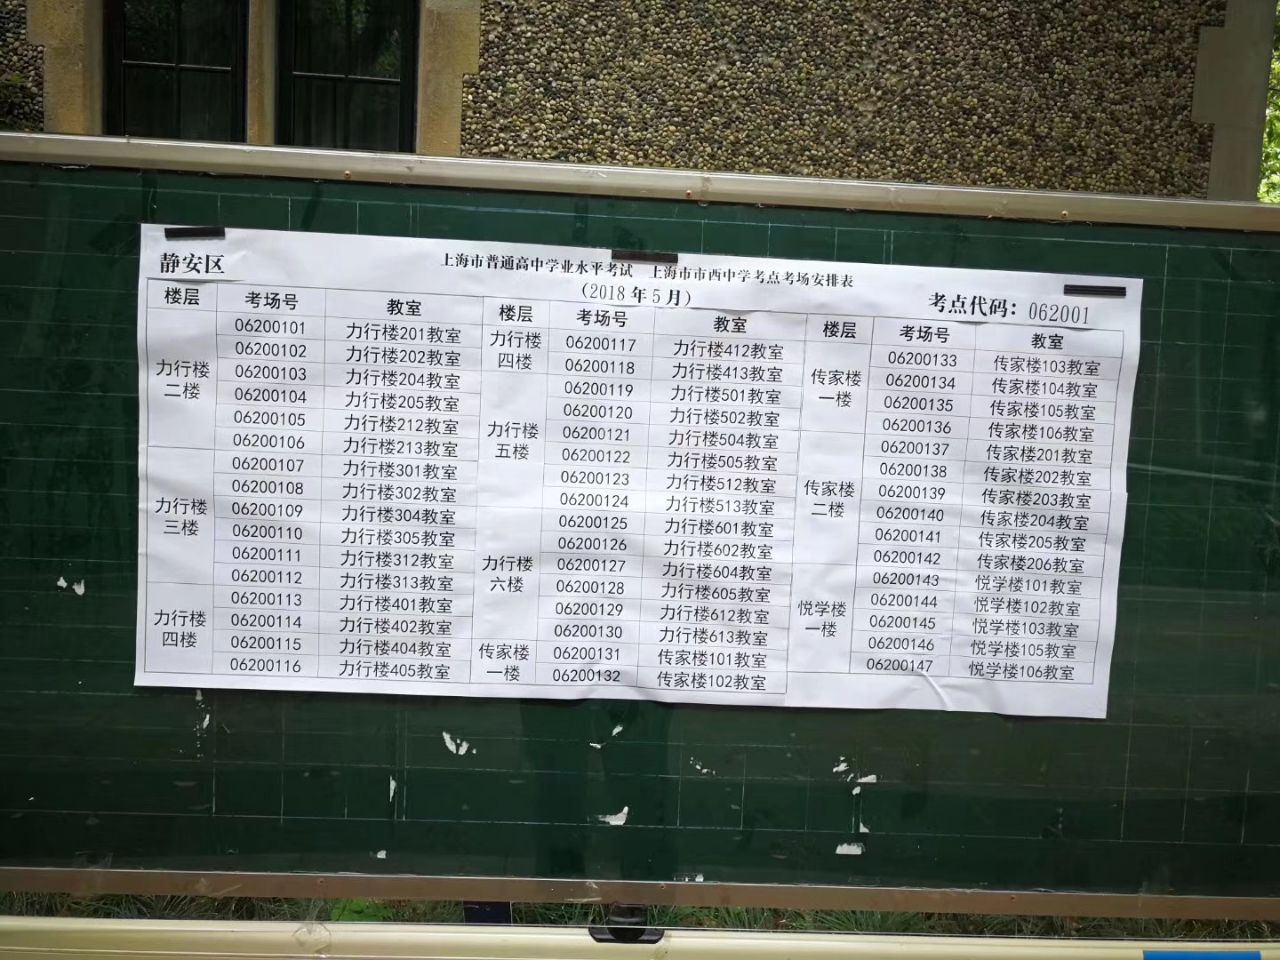 静安区
上海市普通高中学业水平考试 上海市市西中学考点考场安排表
(2018 年 5 月)
考点代码：062001
楼层 考场号 教室
力行楼二楼
06200101 力行楼201教室
06200102 力行楼202教室
06200103 力行楼204教室
06200104 力行楼205教室
06200105 力行楼212教室
06200106 力行楼213教室
力行楼三楼
06200107 力行楼301教室
06200108 力行楼302教室
06200109 力行楼304教室
06200110 力行楼305教室
06200111 力行楼312教室
06200112 力行楼313教室
力行楼四楼
06200113 力行楼401教室
06200114 力行楼402教室
06200115 力行楼404教室
06200116 力行楼405教室
楼层 考场号 教室
力行楼四楼
06200117 力行楼412教室
06200118 力行楼413教室
力行楼五楼
06200119 力行楼501教室
06200120 力行楼502教室
06200121 力行楼504教室
06200122 力行楼505教室
06200123 力行楼512教室
06200124 力行楼513教室
力行楼六楼
06200125 力行楼601教室
06200126 力行楼602教室
06200127 力行楼604教室
06200128 力行楼605教室
06200129 力行楼612教室
06200130 力行楼613教室
传家楼一楼
06200131 传家楼101教室
06200132 传家楼102教室
楼层 考场号 教室
传家楼一楼
06200133 传家楼103教室
06200134 传家楼104教室
06200135 传家楼105教室
06200136 传家楼106教室
传家楼二楼
06200137 传家楼201教室
06200138 传家楼202教室
06200139 传家楼203教室
06200140 传家楼204教室
06200141 传家楼205教室
06200142 传家楼206教室
悦学楼一楼
06200143 悦学楼101教室
06200144 悦学楼102教室
06200145 悦学楼103教室
06200146 悦学楼105教室
06200147 悦学楼106教室